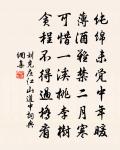 纯绵未觉中年暖
薄酒难禁二月寒
可惜一溪桃李树
贪程不得过桥看
刘克庄江山道中词典
网集